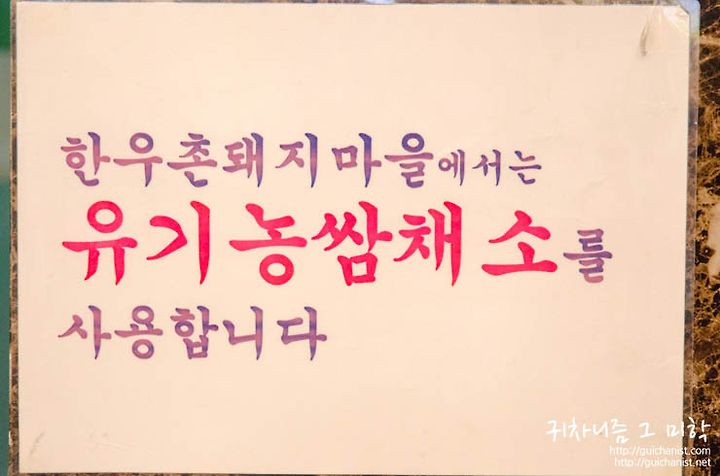 한우촌돼지마을에서는
유기농쌈채소를
사용합니다
귀차니즘 그 미학
http://guichanist.com
http://guichanist.net